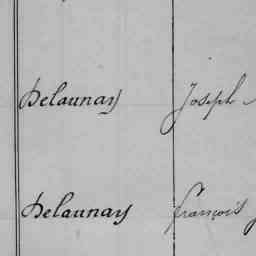 Delaunay Joseph
Delaunay françois